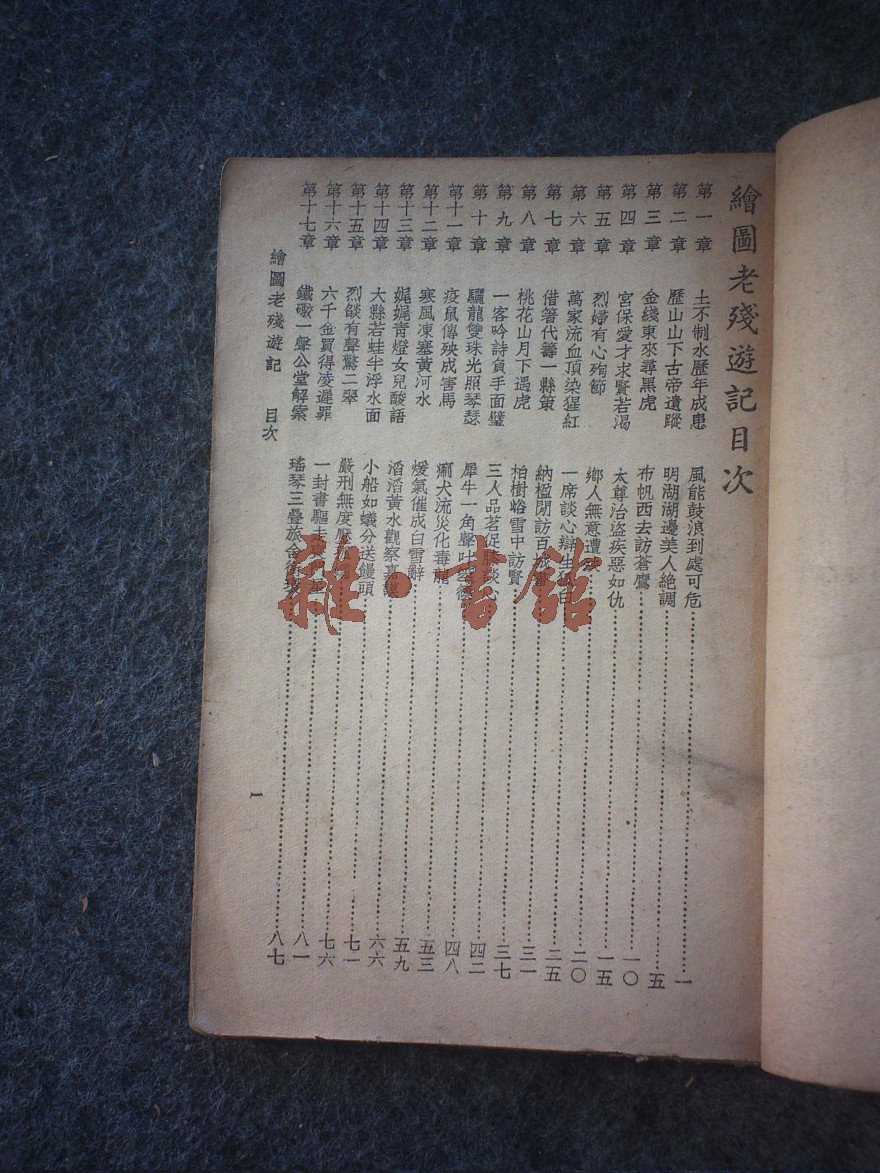 繪圖老殘遊記目次
第一章 土不制水歷年成患 風能鼓浪到處可危 一
第二章 歷山山下古帝遺蹤 明湖湖邊美人絶調 五
第三章 金綫東來尋黑虎 布帆西去訪蒼鷹 一〇
第四章 宮保愛才求賢若渴 太尊治盜疾惡如仇 一五
第五章 烈婦有心殉節 鄉人無意遭 二〇
第六章 萬家流血頂染猩紅 一席談心辯生 白 二五
第七章 借箸代籌一縣策 納楹閒訪百城 三一
第八章 桃花山月下遇虎 柏樹峪雪中訪賢 三七
第九章 一客吟詩負手面壁 三人品茗促膝談心 四二
第十章 驪龍雙珠光照琴瑟 犀牛一角聲叶 四八
第十一章 疫鼠傳殃成害馬 瘈犬流災化毒龍 五三
第十二章 寒風凍塞黃河水 煖氣催成白雪辭 五九
第十三章 娓娓青燈女兒酸語 滔滔黃水觀察嘉謨 六六
第十四章 大縣若蛙半浮水面 小船如蟻分送饅頭 七一
第十五章 烈燄有聲驚二翠 嚴刑無度 七六
第十六章 六千金買得凌遲罪 一封書驅走 八一
第十七章 鐵礮一聲公堂解案 瑤琴三疊旅舍 八七
繪圖老殘遊記 目次
一
雜·書館